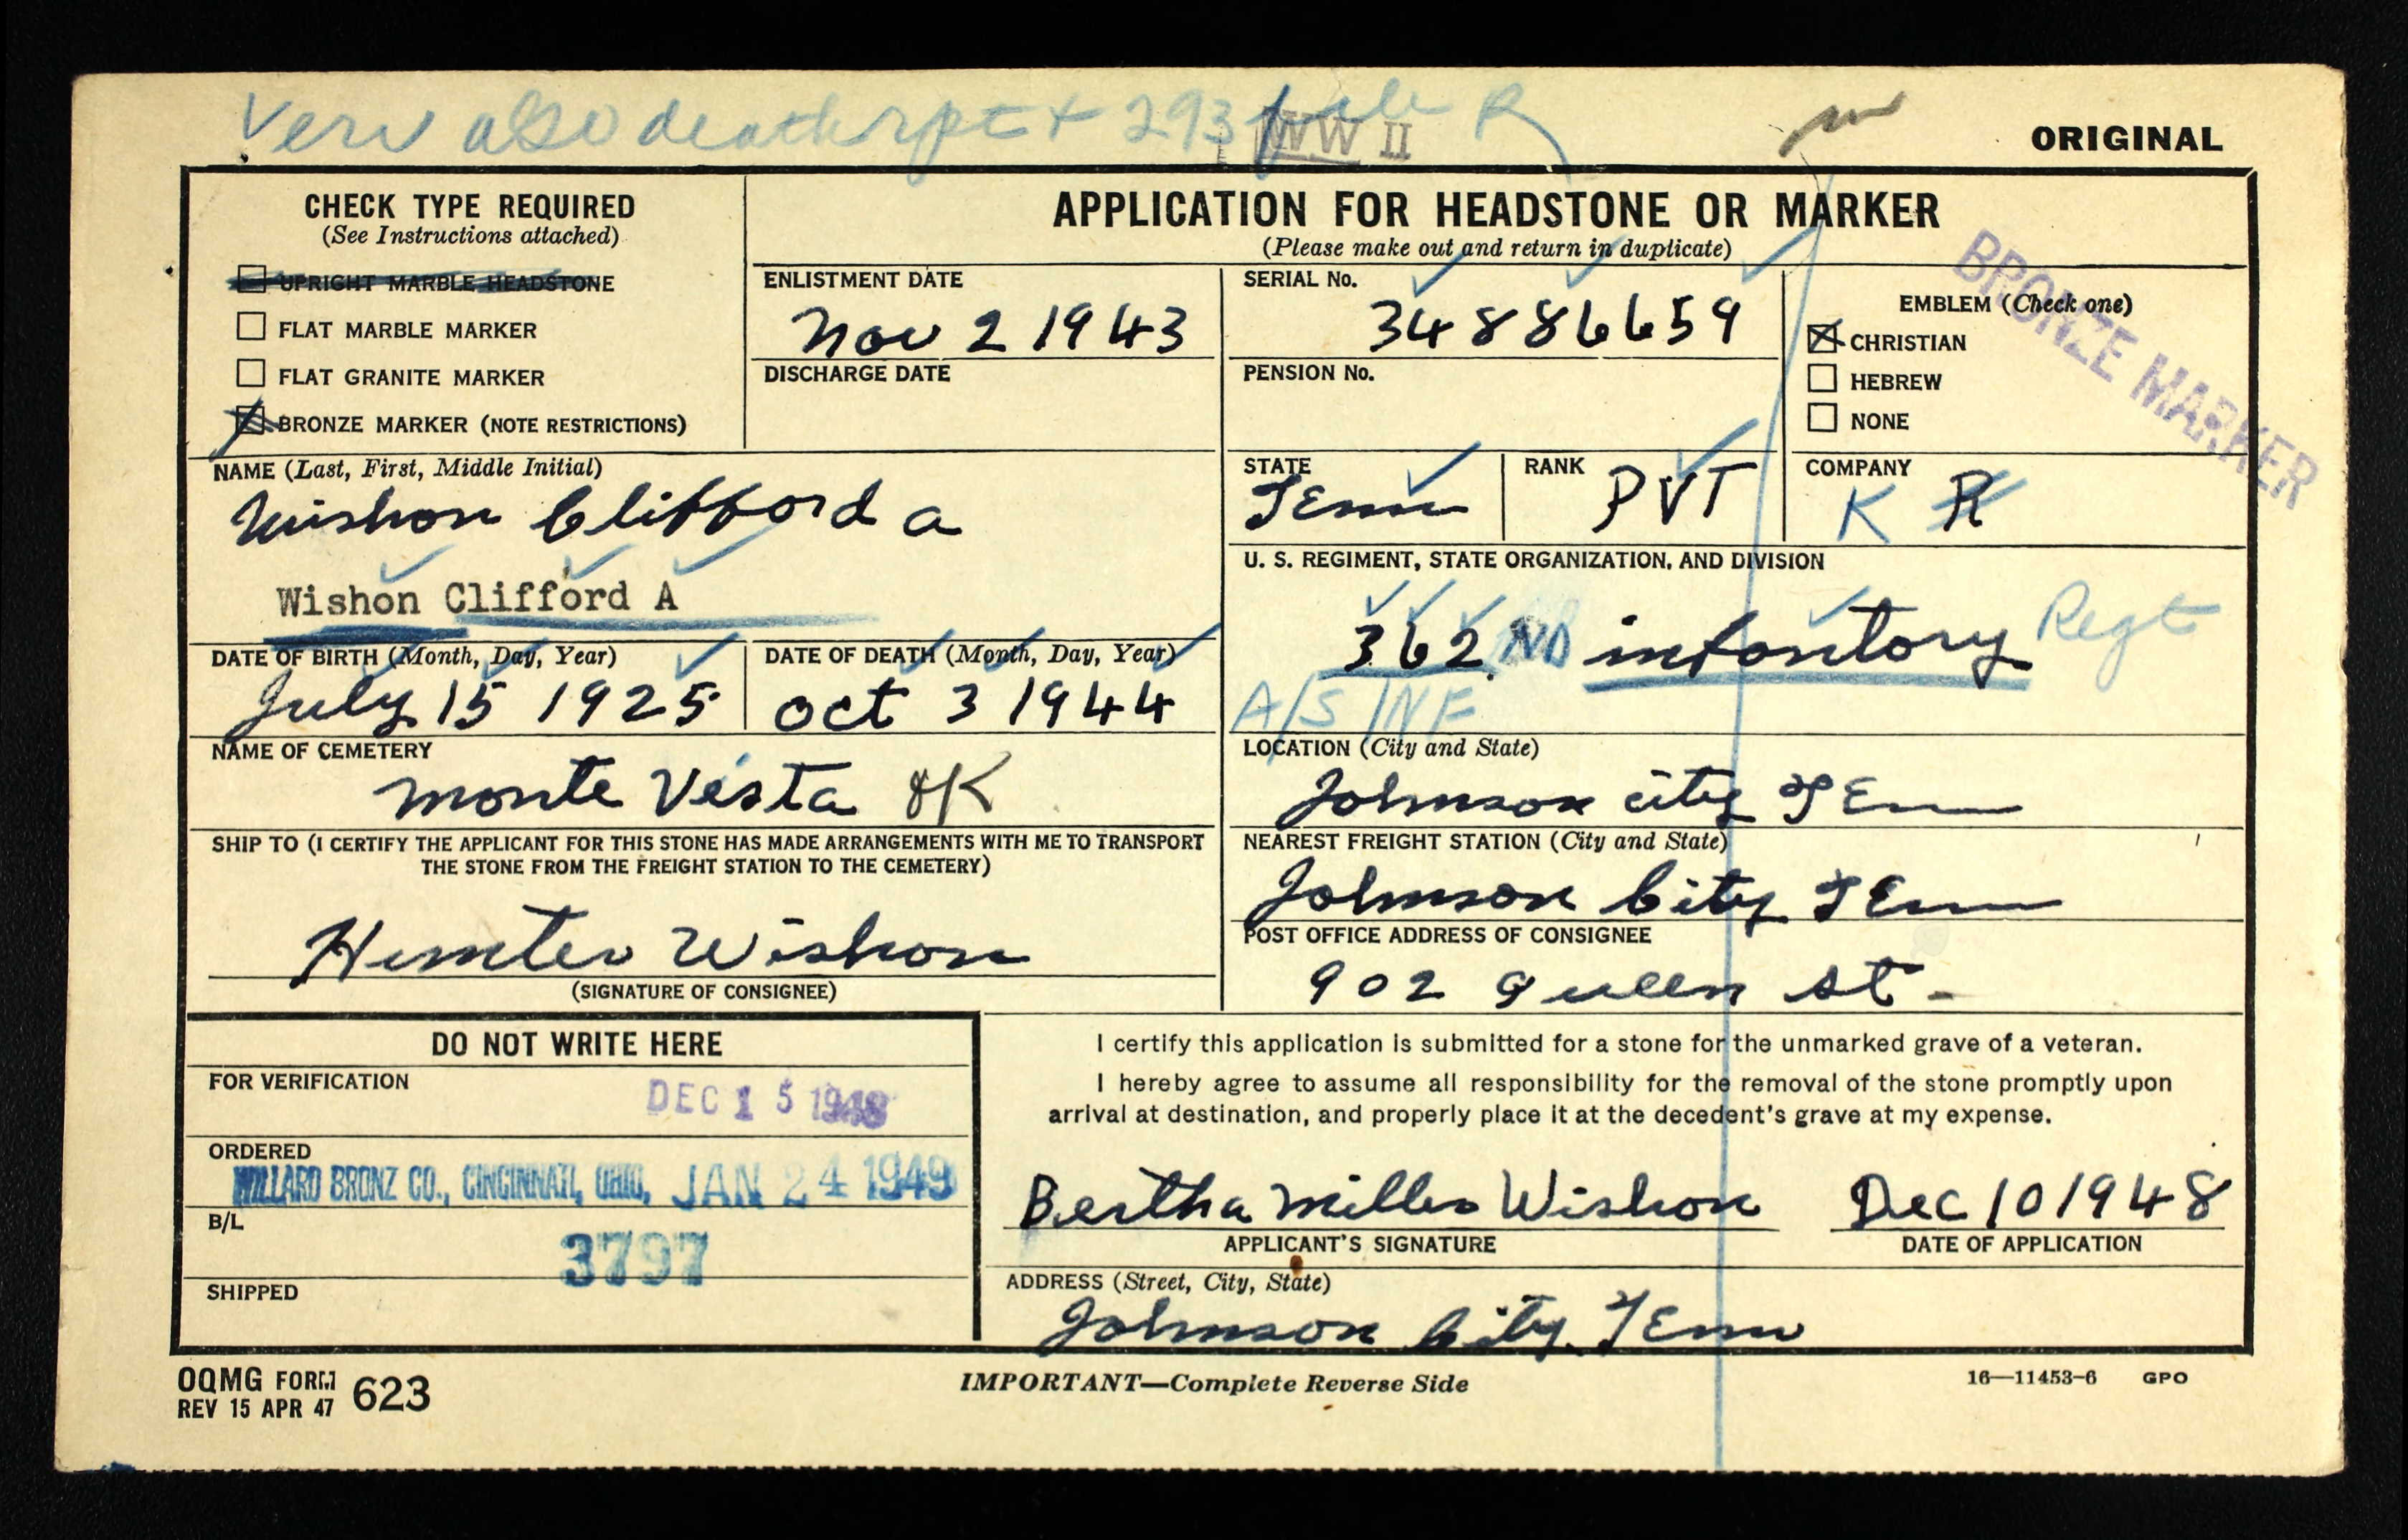 Veri also death rpt + 293 file R
WW II
ORIGINAL
CHECK TYPE REQUIRED
(See Instructions attached)
UPRIGHT MARBLE HEADSTONE
FLAT MARBLE MARKER
FLAT GRANITE MARKER
BRONZE MARKER (NOTE RESTRICTIONS)
APPLICATION FOR HEADSTONE OR MARKER
(Please make out and return in duplicate)
ENLISTMENT DATE
Nov 2 1943
DISCHARGE DATE
SERIAL No.
34886659
PENSION No.
EMBLEM (Check one)
CHRISTIAN
HEBREW
NONE
BRONZE MARKER
NAME (Last, First, Middle Initial)
Wishon Clifford a
Wishon Clifford A
STATE
TEnn
RANK
PVT
COMPANY
K R
U. S. REGIMENT, STATE ORGANIZATION, AND DIVISION
362 ND infantory Regt
A/S INF
DATE OF BIRTH (Month, Day, Year)
July 15 1925
DATE OF DEATH (Month, Day, Year)
Oct 3 1944
NAME OF CEMETERY
monte Vista OK
LOCATION (City and State)
Johnson city TEnn
SHIP TO (I CERTIFY THE APPLICANT FOR THIS STONE HAS MADE ARRANGEMENTS WITH ME TO TRANSPORT
THE STONE FROM THE FREIGHT STATION TO THE CEMETERY)
Hunter Wishon
(SIGNATURE OF CONSIGNEE)
NEAREST FREIGHT STATION (City and State)
Johnson City TEnn
POST OFFICE ADDRESS OF CONSIGNEE
902 Queen st.
DO NOT WRITE HERE
FOR VERIFICATION
DEC 15 1948
ORDERED
WILLARD BRONZ CO., CINCINNATI, OHIO, JAN 24 1949
B/L
3797
SHIPPED
I certify this application is submitted for a stone for the unmarked grave of a veteran.
I hereby agree to assume all responsibility for the removal of the stone promptly upon
arrival at destination, and properly place it at the decedent's grave at my expense.
Bertha Miller Wishon
APPLICANT'S SIGNATURE
Dec 10 1948
DATE OF APPLICATION
ADDRESS (Street, City, State)
Johnson City. TEnn
OQMG FORM 623
REV 15 APR 47
IMPORTANT—Complete Reverse Side
16—11453-6 GPO